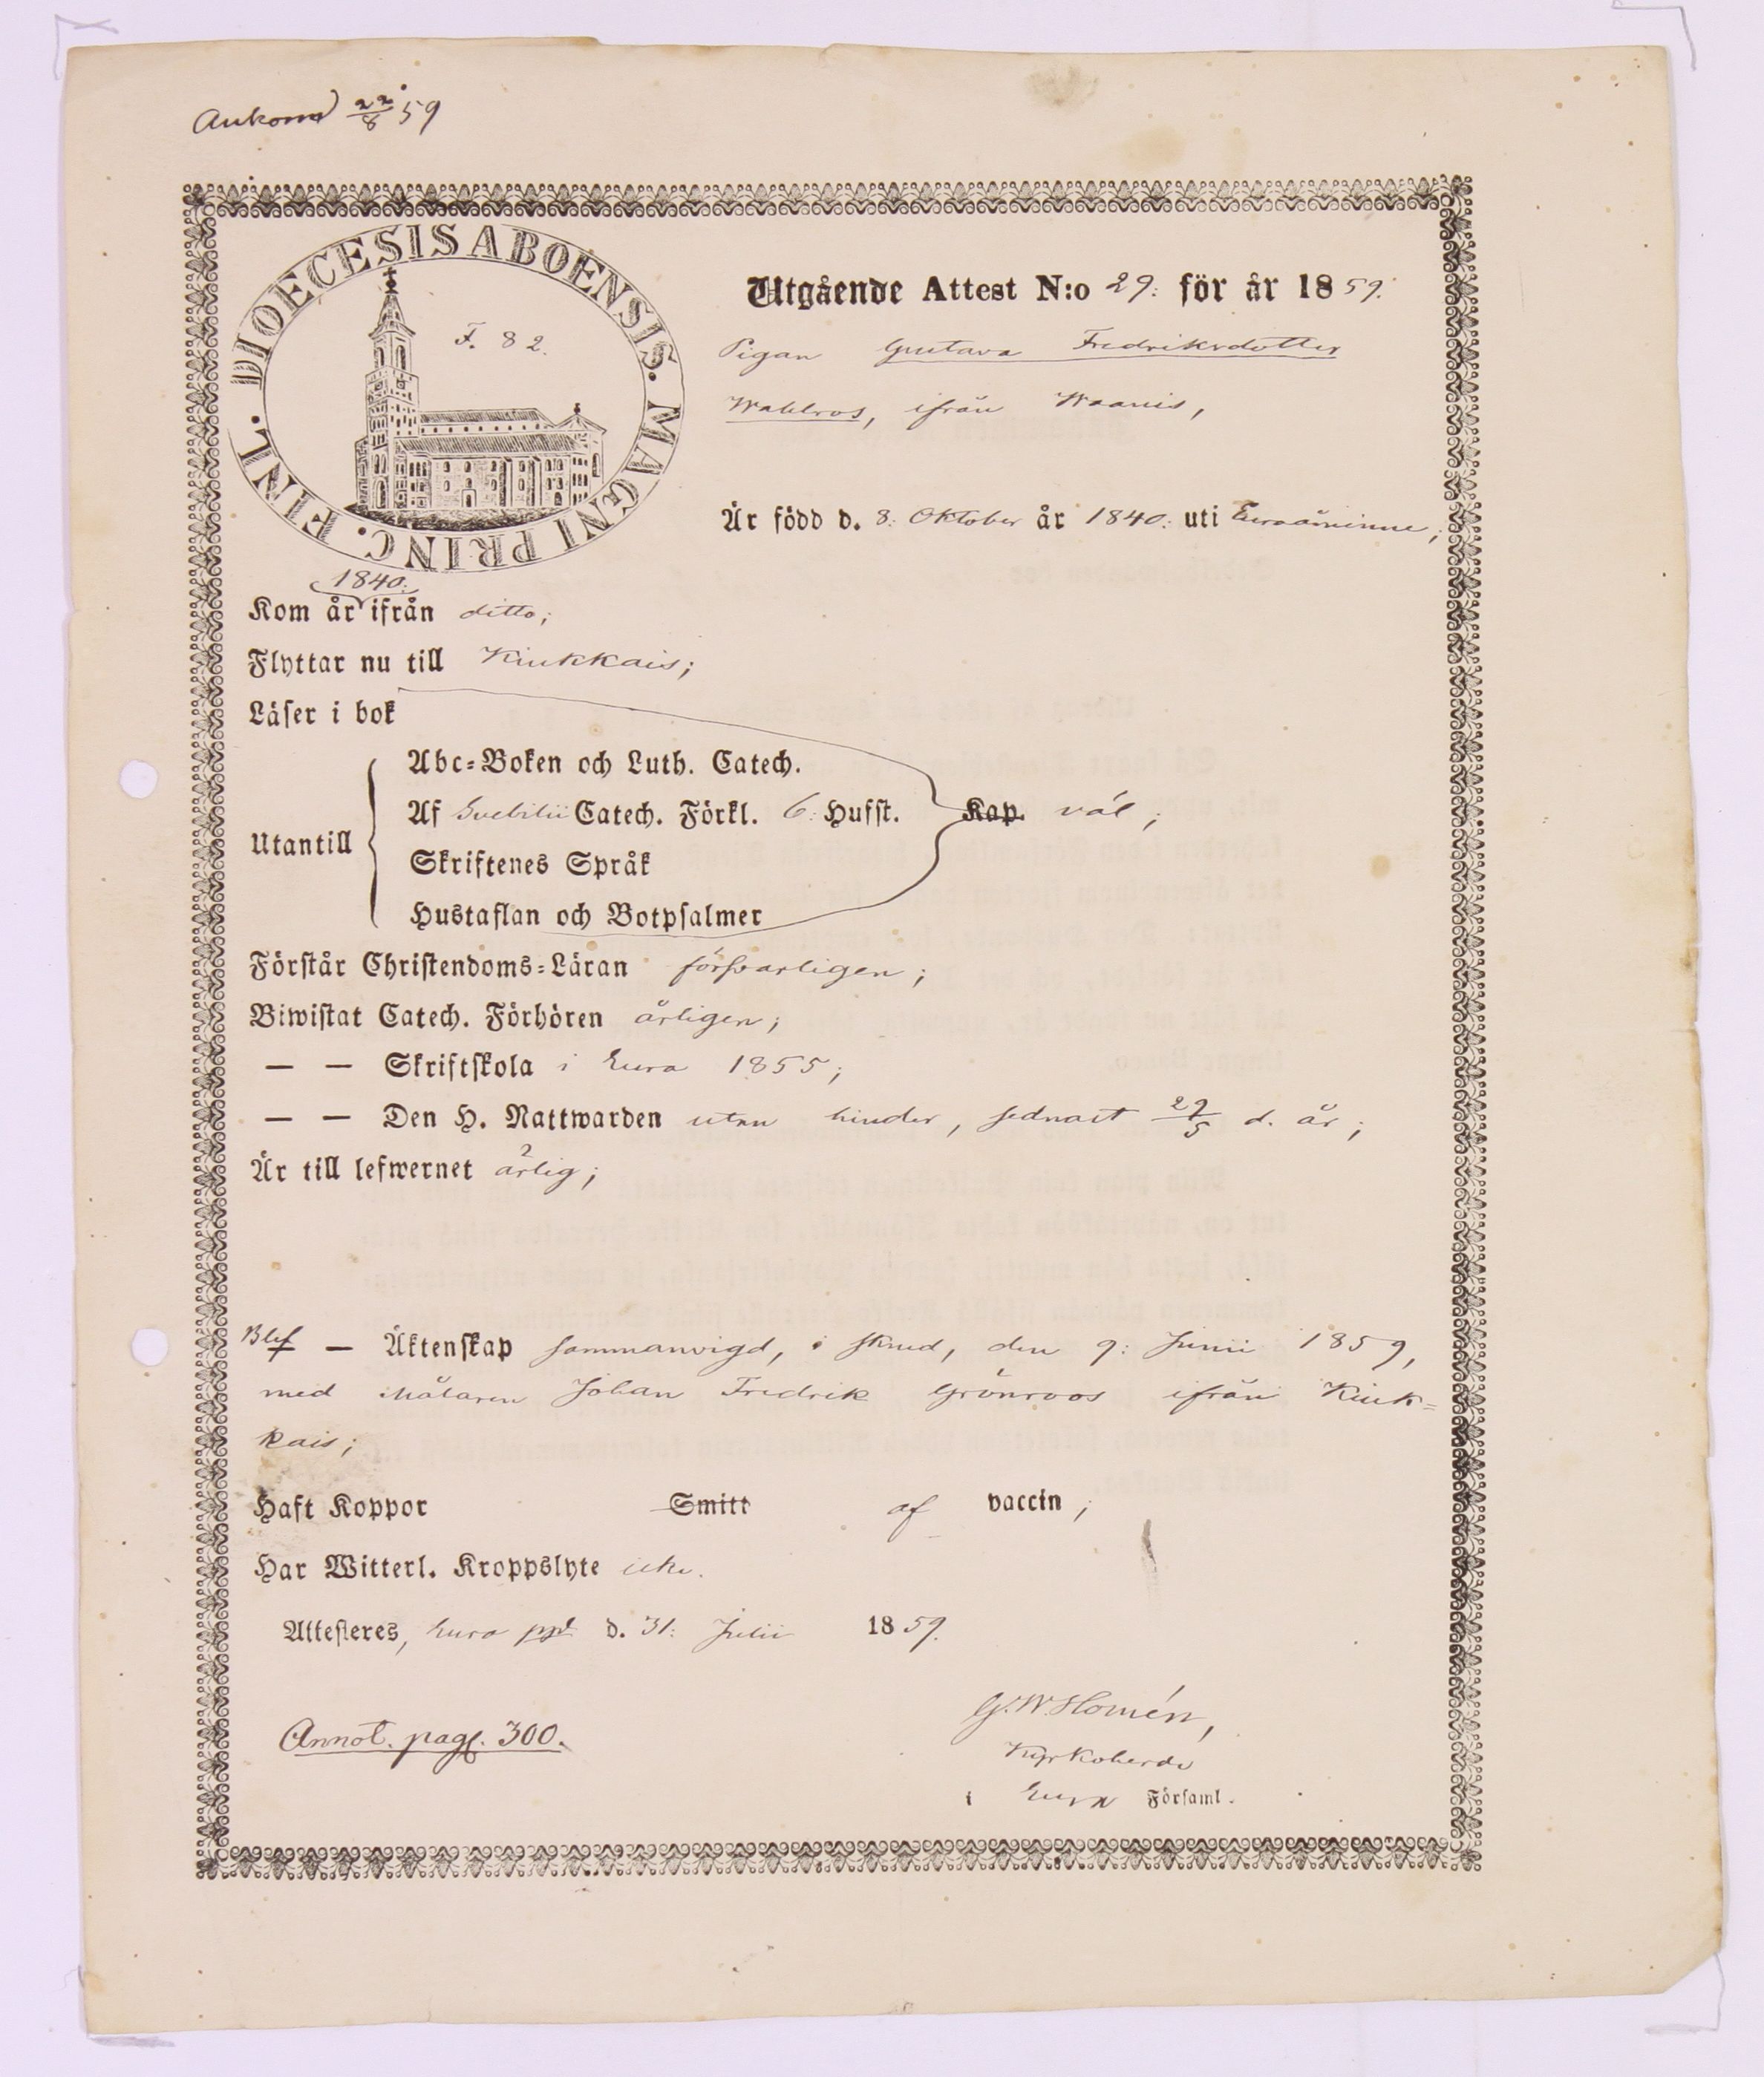 Ankom 22/8 59
DIOECESIS ABOENSIS. MAGNI PRINC. FINL.
F. 82.
Utgående Attest N:o 29: för år 1859.
Pigan Gustava Fredriksdotter
Wahlros, ifrån Waanis,
Är född d. 8: Oktober år 1840: uti Euraåminne;
1840:
Kom år ifrån ditto;
Flyttar nu till Kiukkais;
Läser i bok
Abc-Boken och Luth. Catech.
Af Svebilii Catech. Förkl. 6: Hufst. Kap. väl;
Utantill
Skriftenes Språk
Hustaflan och Botpsalmer
Förstår Christendoms-Läran försvarligen;
Biwistat Catech. Förhören årligen;
— — Skriftskola i Eura 1855;
— — Den H. Nattwarden utan hinder, sednast 29/5 d. år;
Är till lefwernet ärlig;
Blef — Äktenskap sammanvigd, i Skrud, den 9: Junii 1859,
med Målaren Johan Fredrik Grönroos ifrån Kiuk=
kais;
Haft Koppor Smitt af vaccin;
Har Witterl. Kroppslyte icke.
Attesteres, Eura ppl d. 31: Julii 1859.
G. W. Homén,
Annot. pag. 300.
Kyrkoherde
i Eura Församl.